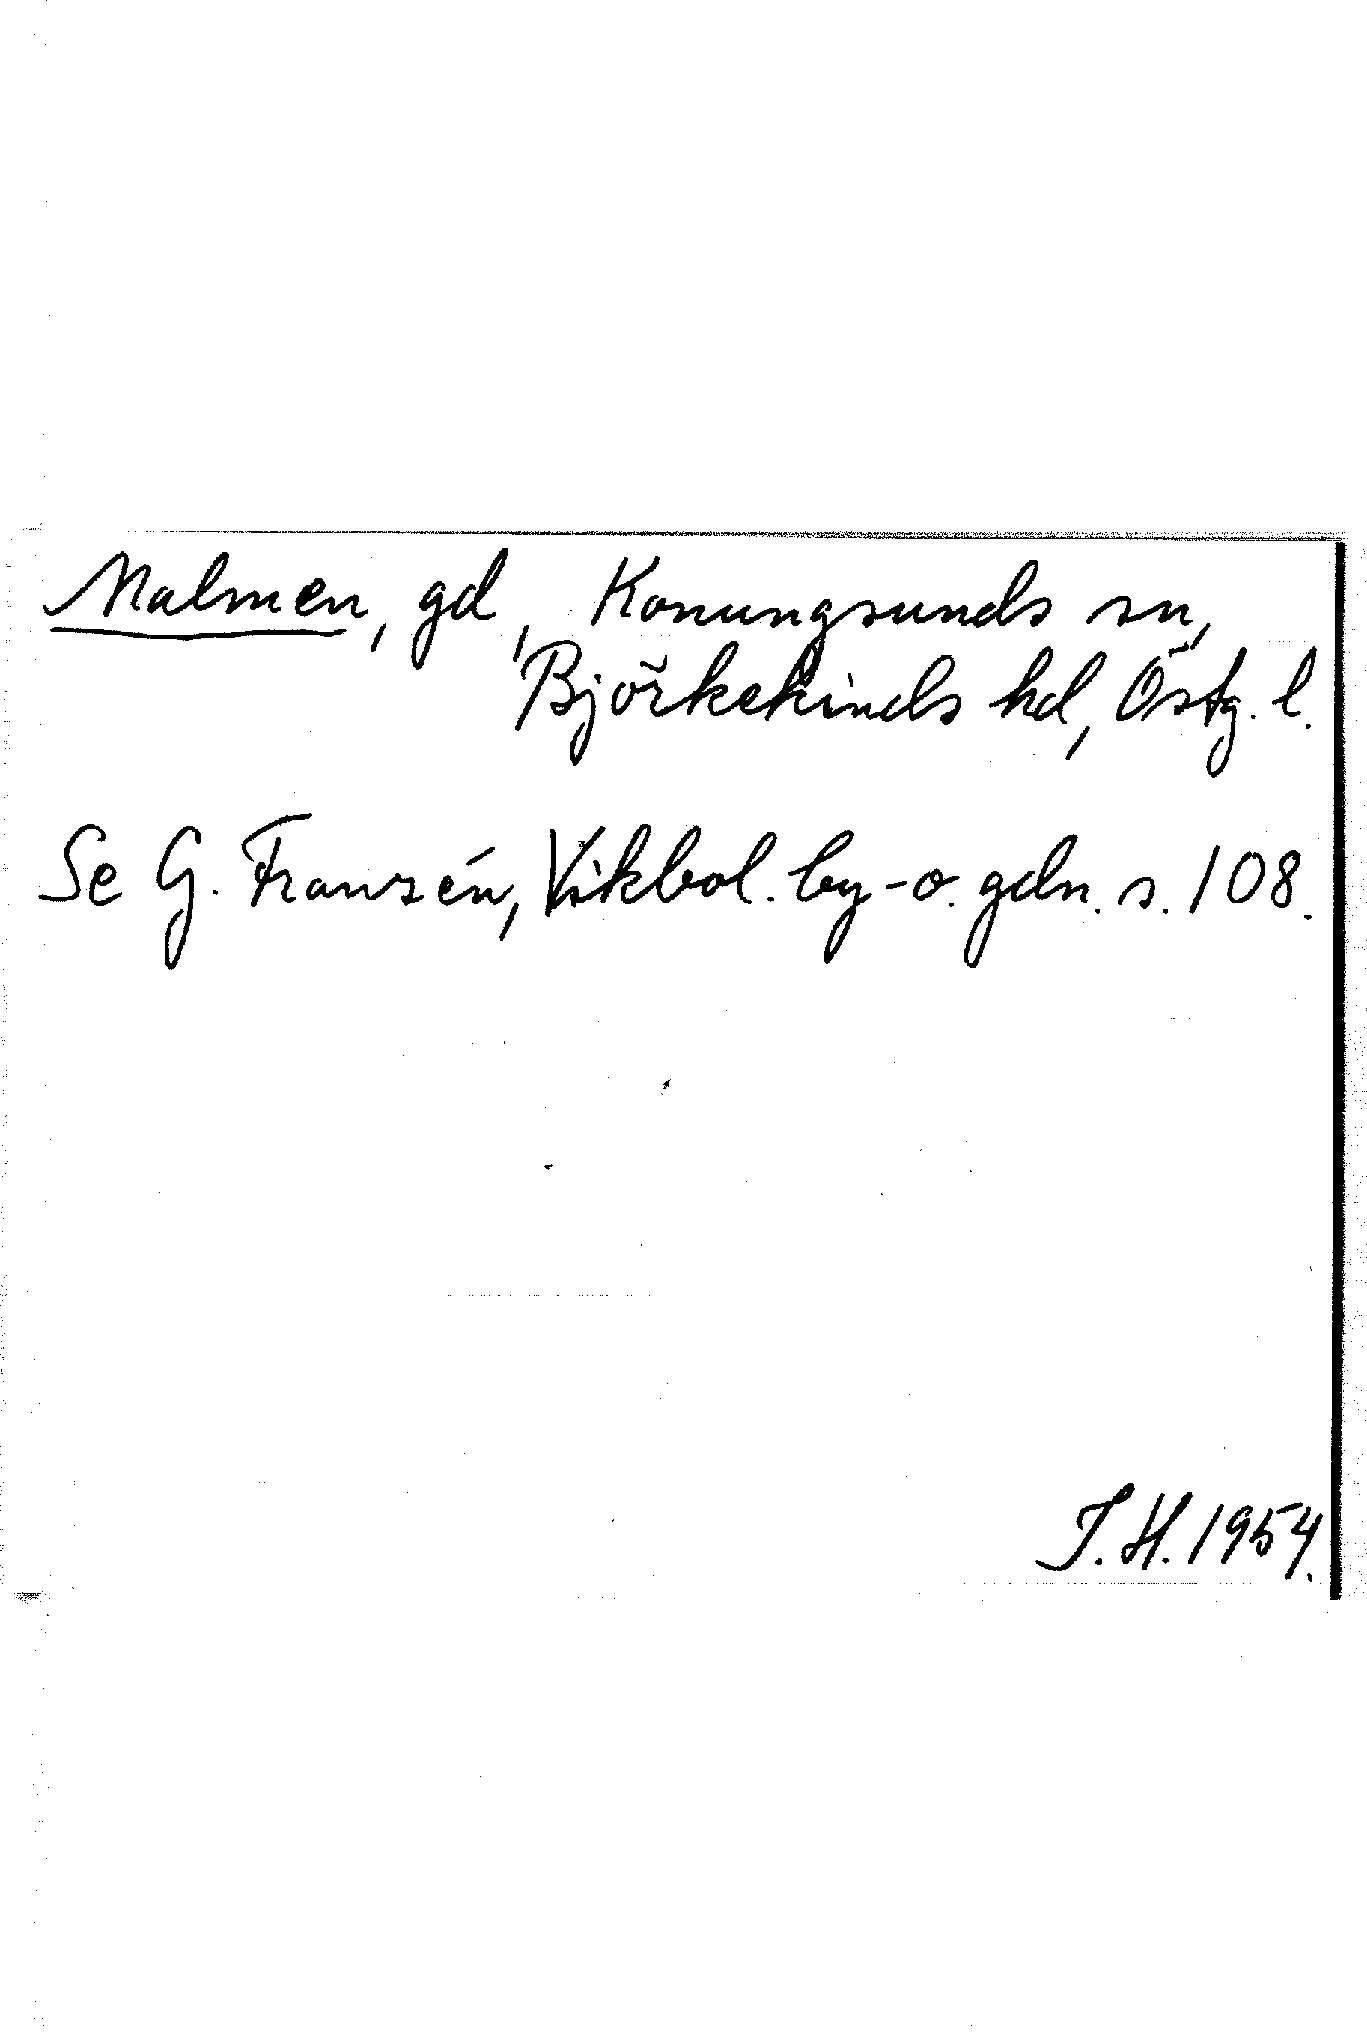 Malmen, gd, Konungsunds sn,
Björkekinds hd, Östg. l.
Se G. Franzén, Vikbol. by- o. gdn. s. 108.
T.H. 1954.